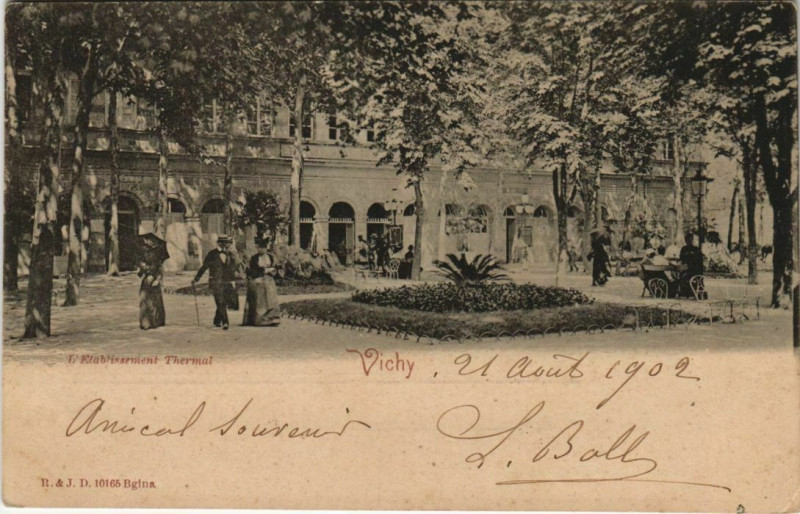 L'Etablissement Thermal
Vichy . 21 Août 1902
Amical Souvenir
L. Boll
R. & J. D. 10165 Bglna